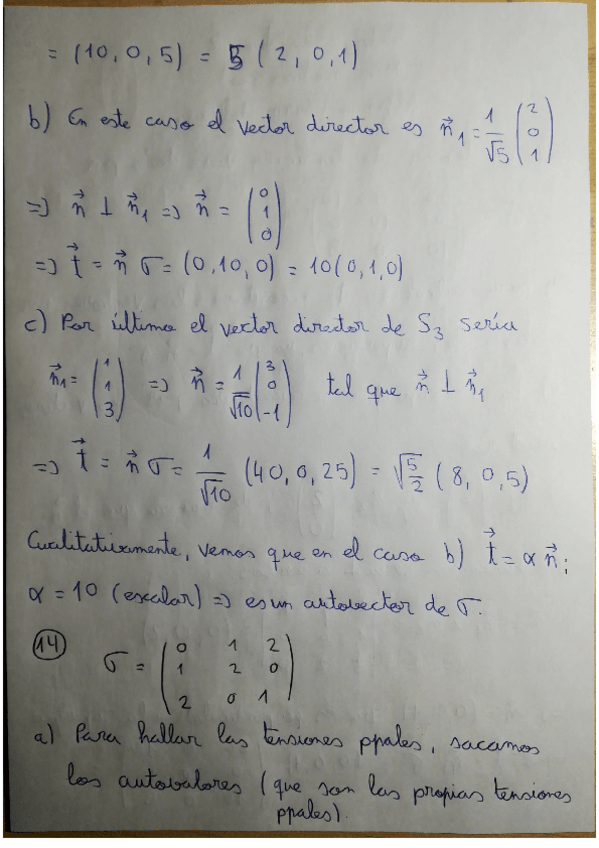 = (10, 0, 5) = 5 (2, 0, 1)
b) En este caso el vector director es n⃗₁ = 1/√5 (2 0 1)
=> n⃗ ⊥ n⃗₁ => n⃗ = (0 1 0)
=> t⃗ = n⃗ σ = (0, 10, 0) = 10(0,1,0)
c) Por último el vector director de S₃ sería
n⃗₁ = (1 1 3) => n⃗ = 1/√10 (3 0 -1) tal que n⃗ ⊥ n⃗₁
=> t⃗ = n⃗ σ = 1/√10 (40, 0, 25) = √(5/2) (8, 0, 5)
Cualitativamente, vemos que en el caso b) t⃗ = α n⃗;
α = 10 (escalar) => es un autovector de σ.
14 σ = (0 1 2
1 2 0
2 0 1)
a) Para hallar las tensiones ppales, sacamos
los autovalores (que son las propias tensiones
ppales).